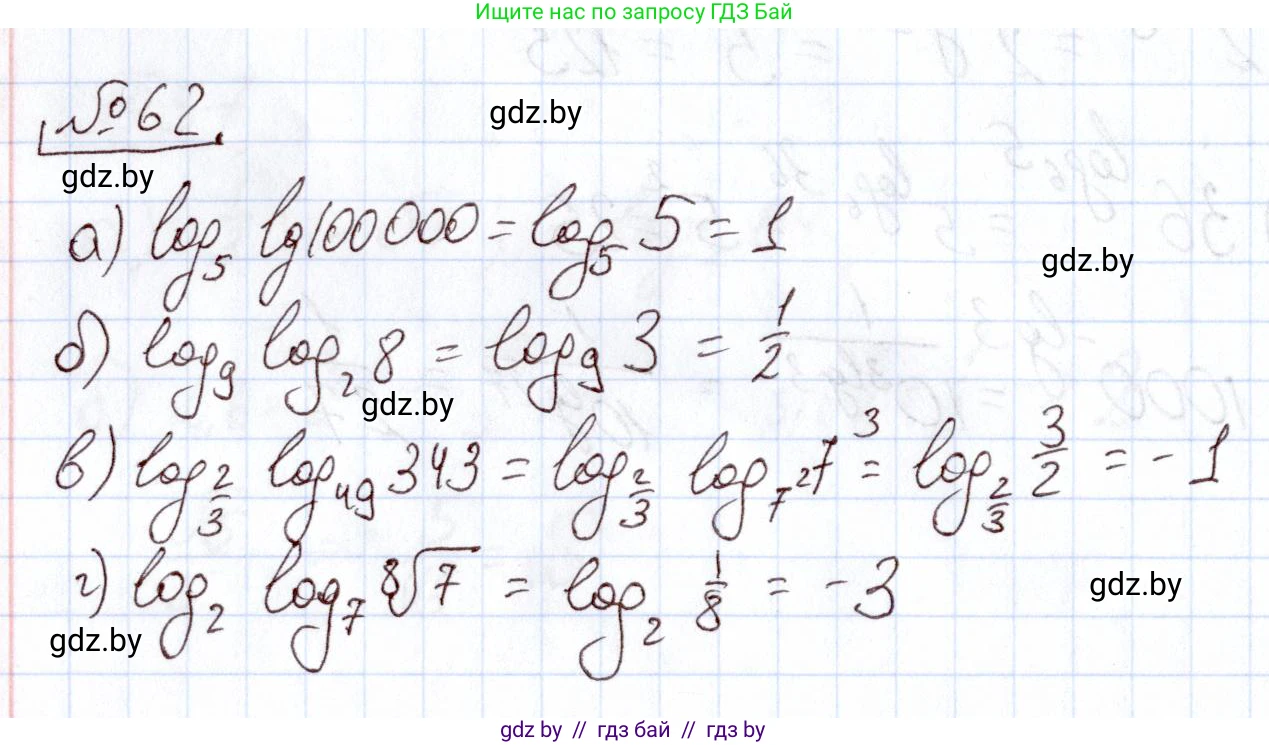 Ищите нас по запросу ГДЗ Бай
№ 62
gdz.by
gdz.by
а) log₅ lg100000 = log₅ 5 = 1
gdz.by
б) log₉ log₂ 8 = log₉ 3 = 1/2
gdz.by
в) log_{2/3} log₄₉ 343 = log_{2/3} log_{7²} 7³ = log_{2/3} 3/2 = -1
г) log₂ log₇ ⁸√7 = log₂ 1/8 = -3
gdz.by
gdz.by
gdz.by // гдз бай // гдз by